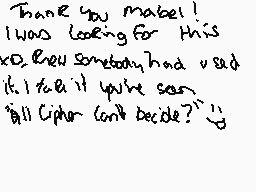 Thank you mabel!
I was looking for this
xD. Knew somebody had used
it. I take it you've seen
"Bill Cipher Can't Decide?" :)